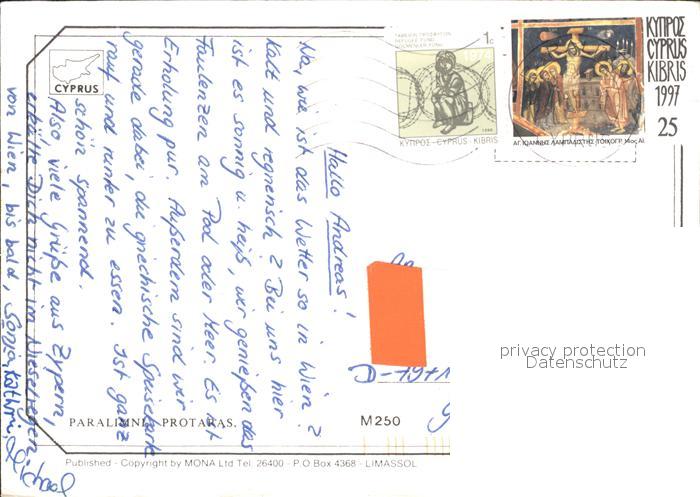 Hallo Andreas!
Na, wie ist das Wetter so in Wien?
Kalt und regnerisch? Bei uns hier
ist es sonnig u. heiß, wir genießen das
Faulenzen am Pool oder Meer. Es ist
Erholung pur. Außerdem sind wir
gerade dabei, die griechische Speisekarte
rauf und runter zu essen. Ist ganz
schön spannend.
Also, viele Grüße aus Zypern,
erkälte Dich nicht im Nieselregen
von Wien, bis bald, Sonja, Kathrin
Michael
CYPRUS
ΤΑΜΕΙΟΝ ΠΡΟΣΦΥΓΩΝ
REFUGEE FUND
GÖÇMENLER FONU
1c
1974
ΚΥΠΡΟΣ · CYPRUS · KIBRIS
ΚΥΠΡΟΣ
CYPRUS
KIBRIS
1997
25
ΑΓ. ΙΩΑΝΝΗΣ ΛΑΜΠΑΔΙΣΤΗΣ - ΤΟΙΧΟΓΡ. 14ος ΑΙ.
An
privacy protection
Datenschutz
PARALIMNI - PROTARAS.
M250
Published - Copyright by MONA Ltd Tel. 26400 - P.O Box 4368 - LIMASSOL